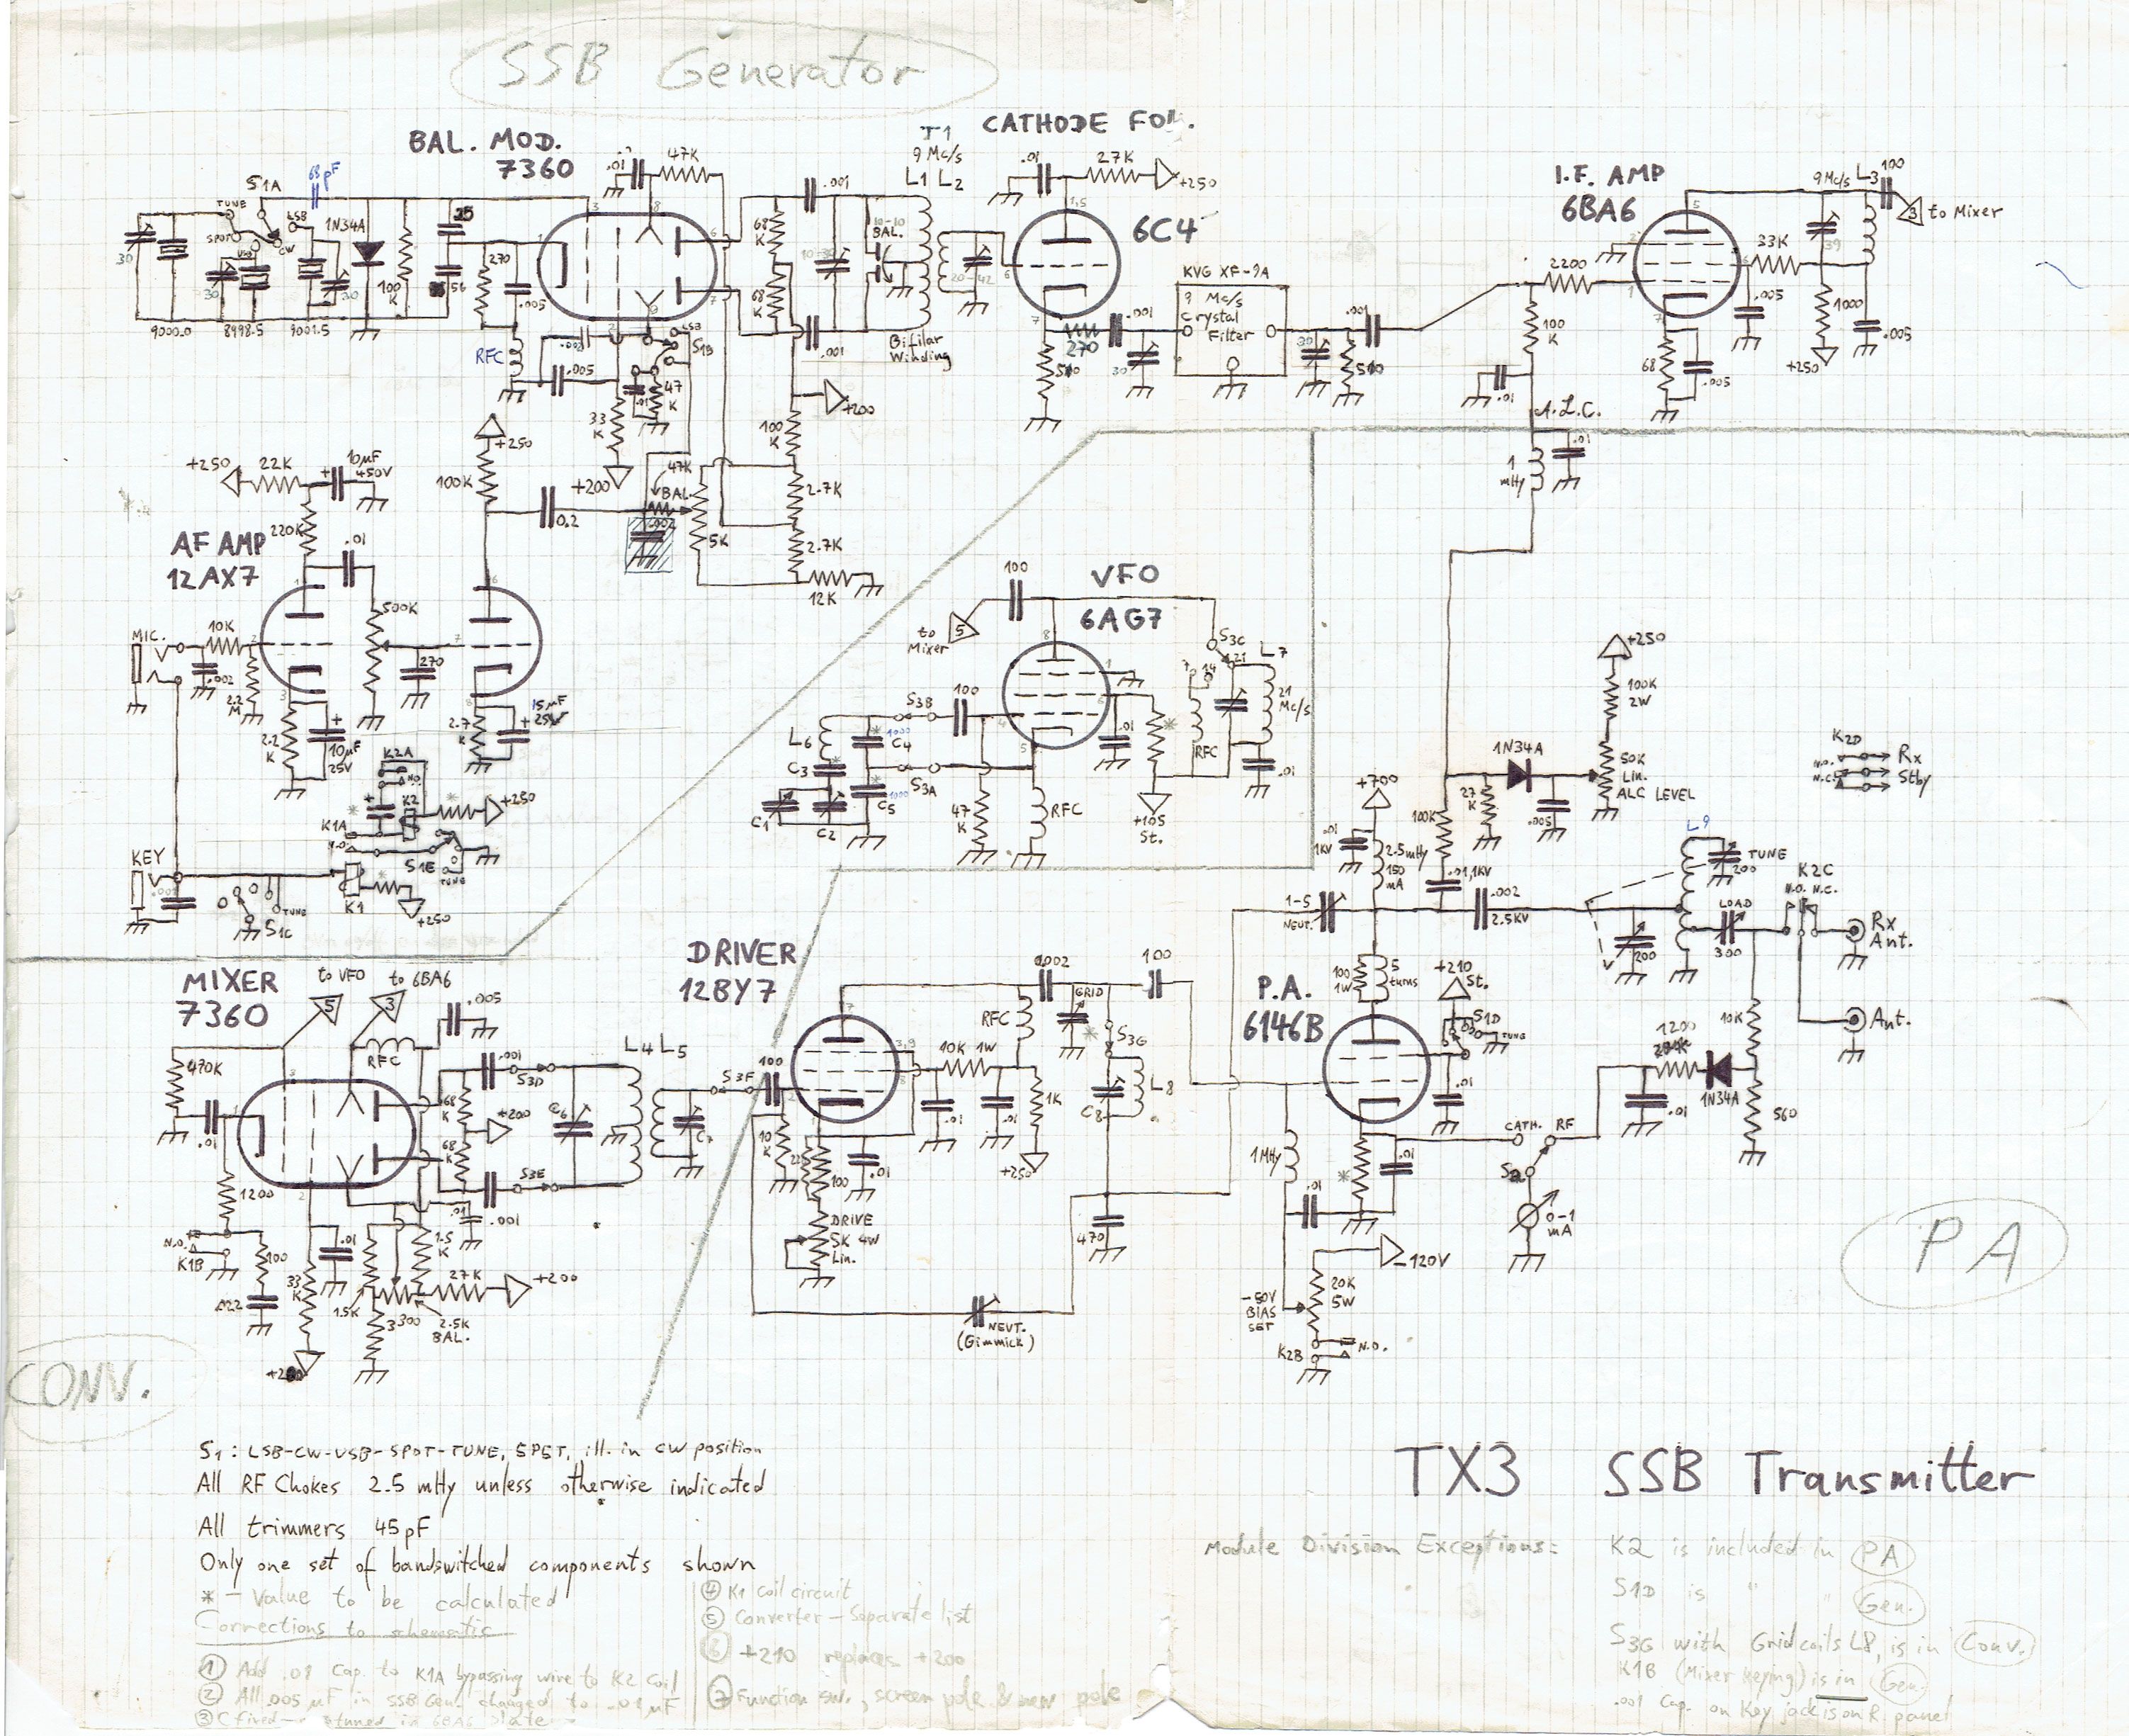 SSB Generator
BAL. MOD.
7360
T1
9 Mc/s
L1 L2
CATHODE FOL.
6C4
I.F. AMP
6BA6
9 Mc/s L3
100
to Mixer
3
S1A
TUNE
SPOT
LSB
CW
68 pF
1N34A
30
30
30
9000.0
8998.5
9001.5
100
K
25
56
270
.005
RFC
.01
47K
68
K
68
K
.001
.001
10-10
BAL.
Bifilar
Winding
.01
27K
+250
270
510
.001
30
KVG XF-9A
9 Mc/s
Crystal
Filter
30
510
.001
2200
100
K
.01
A.L.C.
.01
1
mHy
33K
.005
68
.005
39
1000
+250
.005
.005
LSB
S1B
47
K
.01
33
K
+200
+200
100
K
2.7K
2.7K
12K
47K
BAL.
5K
.002
0.2
+250
100K
+250
22K
10µF
450V
220K
.01
AF AMP
12AX7
500K
270
MIC.
10K
.002
2.2
M
2.2
K
10µF
25V
2.7
K
15µF
25V
K2A
N.O.
K2
K1A
N.O.
+250
S1E
TUNE
KEY
K1
+250
S1C
TUNE
VFO
6AG7
100
to
Mixer
5
S3C
7 14 21
L7
21
Mc/s
RFC
.01
.01
+105
St.
S3B
100
L6
C3
C4
1000
C5
1000
S3A
C1
C2
47
K
RFC
+250
100K
2W
50K
Lin.
ALC LEVEL
1N34A
27
K
.005
100K
.01,1KV
K2D
N.O.
N.C.
Rx
Stby
+700
.01
1KV
2.5mHy
150
mA
1-5
NEUT.
.002
2.5KV
L9
TUNE
200
200
LOAD
300
K2C
N.O. N.C.
Rx
Ant.
Ant.
10K
1200
1N34A
.01
560
MIXER
7360
to VFO
5
to 6BA6
3
.005
470K
RFC
.01
.001
S3D
68
K
+200
68
K
S3E
.001
.01
C6
L4 L5
C7
S3F
1200
N.O.
K1B
100
33
K
.01
1.5K
1.5
K
27K
+200
2.5K
BAL.
DRIVER
12BY7
100
10
K
.01
100
DRIVE
5K 4W
Lin.
10K 1W
.01
.01
1K
+250
RFC
.002
GRID
S3G
C8
L8
100
470
NEUT.
(Gimmick)
P.A.
6146B
100
1W
5
turns
+210
St.
S1D
TUNE
.01
1MHy
.01
.01
CATH.
RF
S2
0-1
mA
-120V
20K
5W
-50V
BIAS
SET
K2B
N.O.
PA
CONV.
S1: LSB-CW-USB-SPOT-TUNE, 5P5T, ill. in CW position
All RF Chokes 2.5 mHy unless otherwise indicated
All trimmers 45pF
Only one set of bandswitched components shown
* - Value to be calculated
Corrections to schematic
① Add .01 Cap. to K1A bypassing wire to K2 Coil
② All .005 µF in SSB Gen. changed to .01 µF
④ K1 coil circuit
⑤ Converter - Separate list
⑥ +210 replaces +200
⑦ Function sw., screen pole & new pole
TX3 SSB Transmitter
Module Division Exceptions:
K2 is included in PA
S1D is " " Gen.
S3G with Grid coils L8, is in Conv.
K1B (Mixer keying) is in Gen.
.001 Cap. on Key jack is on R. panel